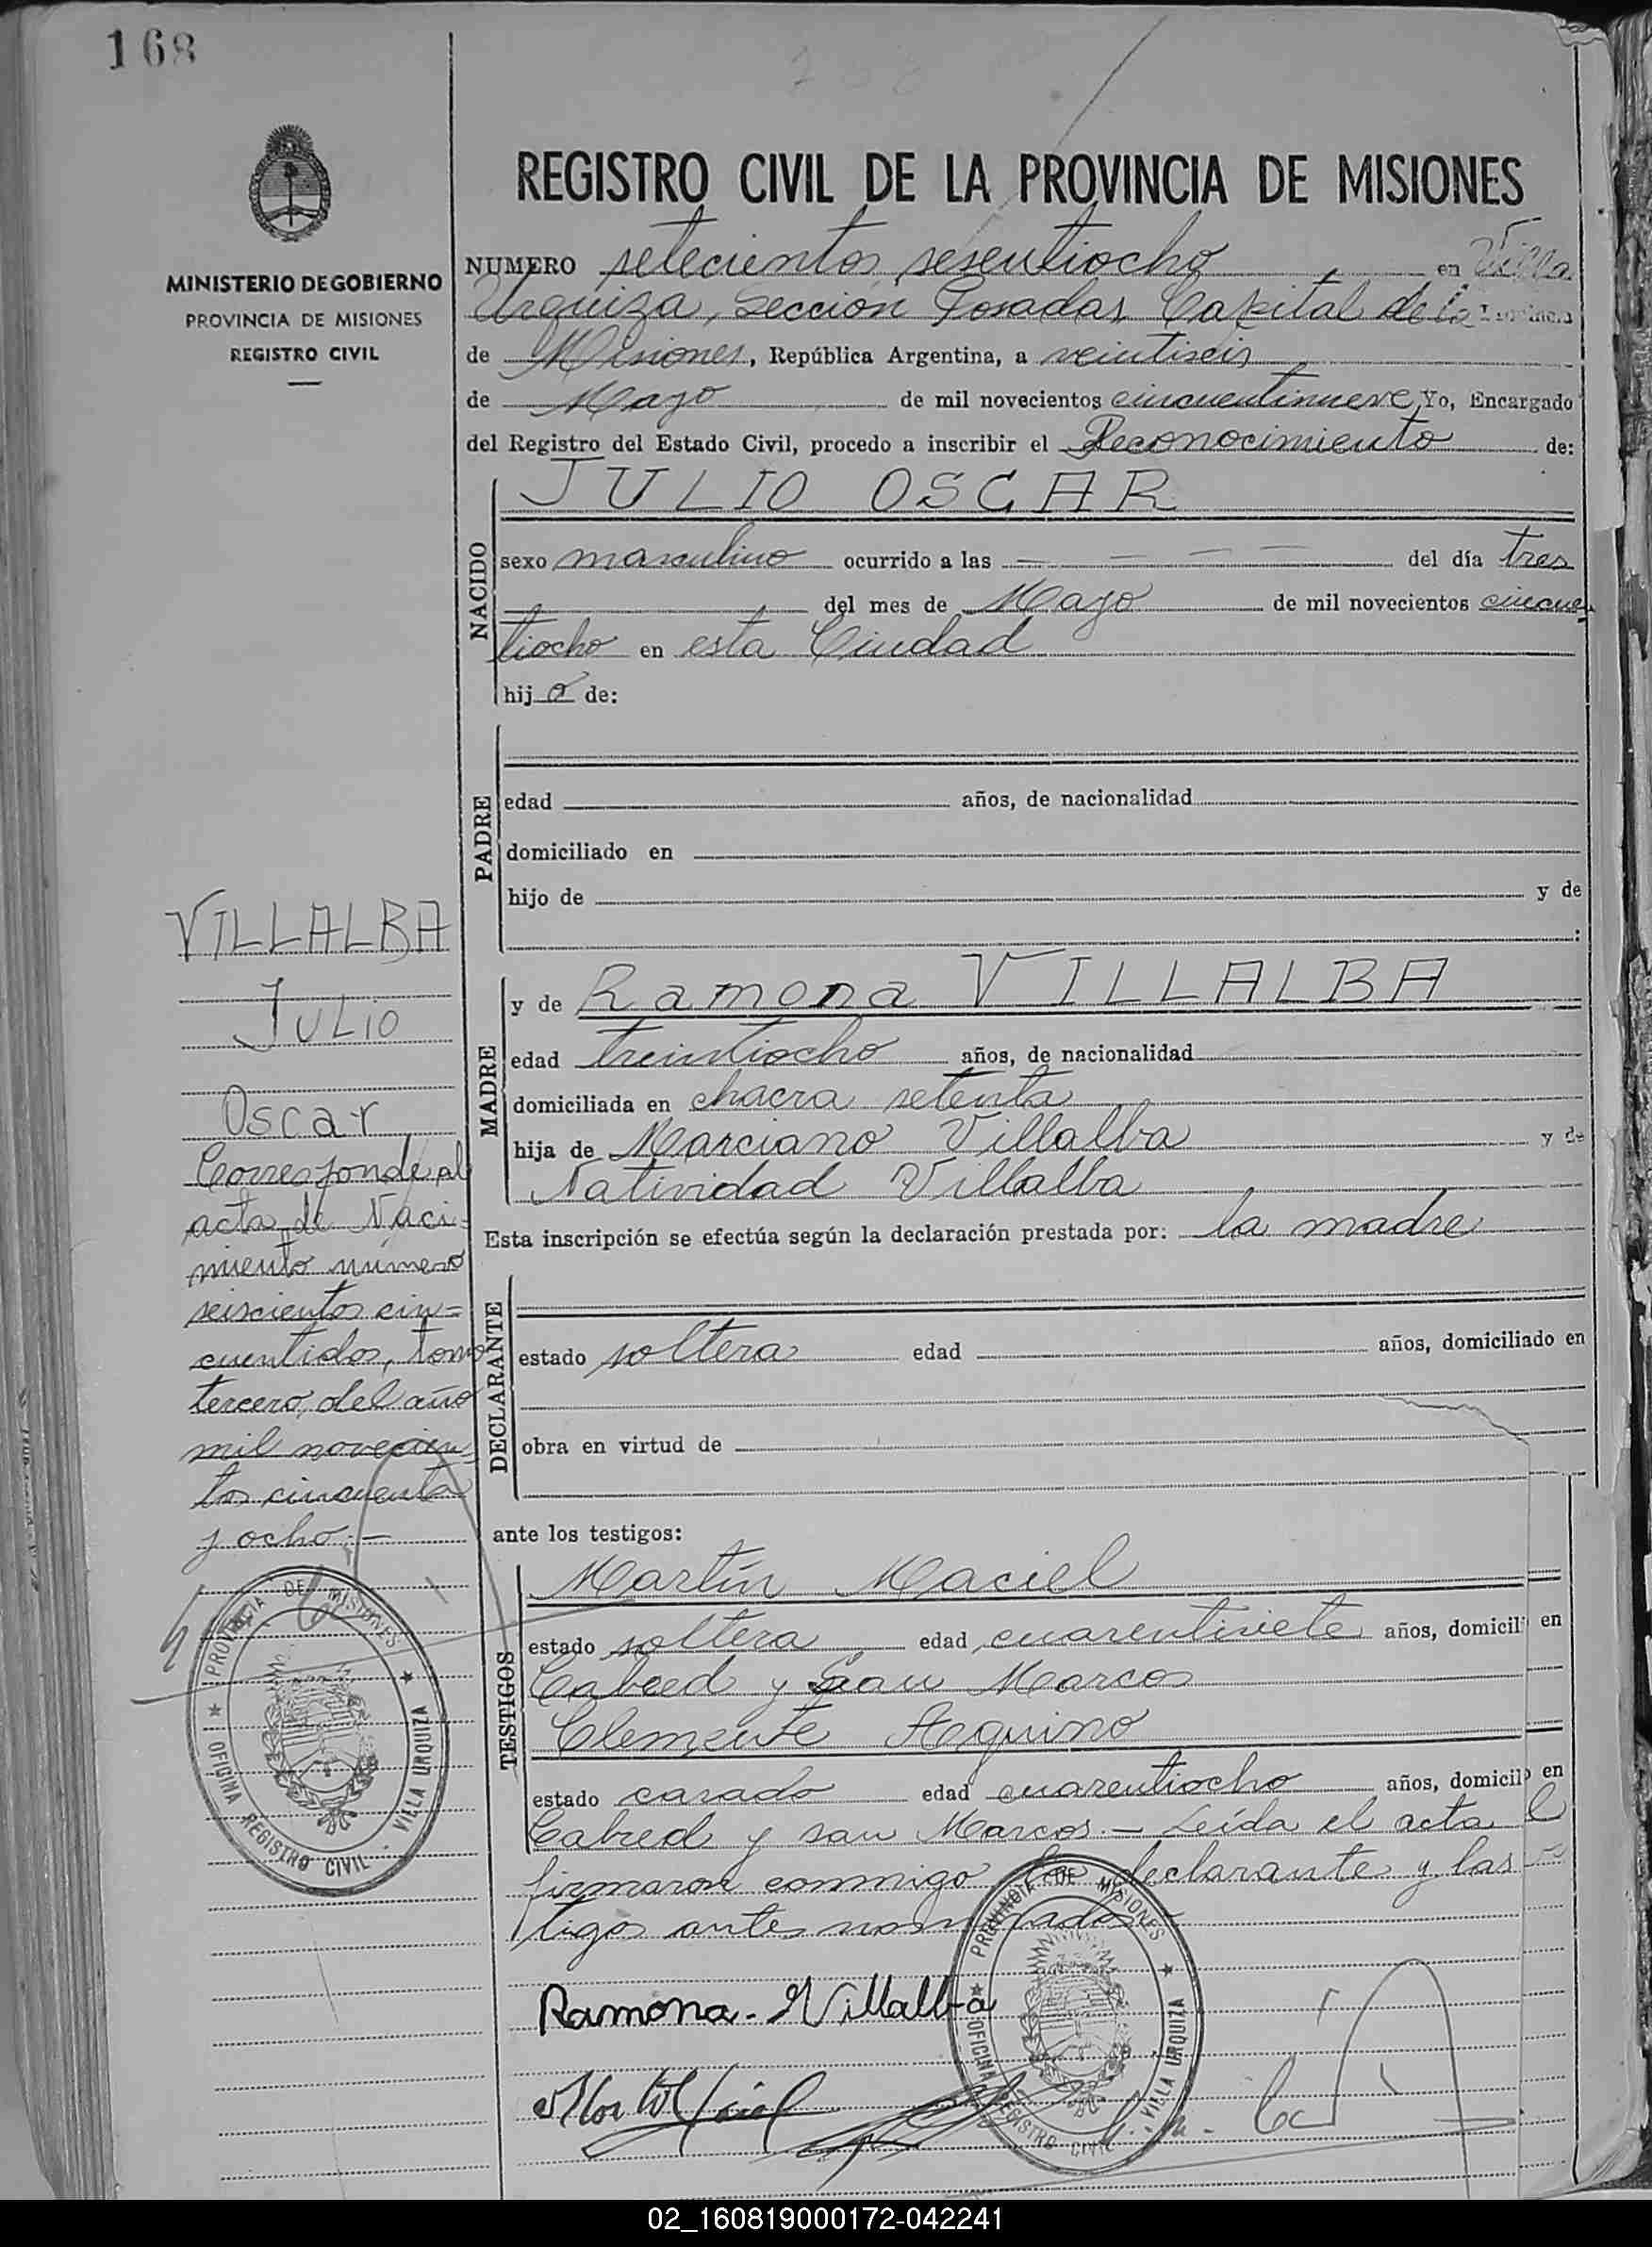 168
REGISTRO CIVIL DE LA PROVINCIA DE MISIONES
MINISTERIO DE GOBIERNO
PROVINCIA DE MISIONES
REGISTRO CIVIL
NUMERO setecientos sesentiocho en Villa
Urquiza, Sección Posadas, Capital de la Provincia
de Misiones, República Argentina, a veintiseis
de Mayo de mil novecientos cincuentinueve Yo, Encargado
del Registro del Estado Civil, procedo a inscribir el Reconocimiento de:
NACIDO
JULIO OSCAR
sexo masculino ocurrido a las — — — — del día tres
del mes de Mayo de mil novecientos cincuen
tiocho en esta Ciudad
hijo de:
PADRE
edad años, de nacionalidad
domiciliado en
hijo de y de
:
MADRE
y de Ramona VILLALBA
edad treintiocho años, de nacionalidad
domiciliada en chacra setenta
hija de Marciano Villalba y de
Natividad Villalba
Esta inscripción se efectúa según la declaración prestada por: la madre
DECLARANTE
estado soltera edad años, domiciliado en
obra en virtud de
ante los testigos:
TESTIGOS
Martín Maciel
estado soltera edad cuarentisiete años, domicil en
Cabred y San Marcos
Clemente Aquino
estado casado edad cuarentiocho años, domicil en
Cabred y san Marcos.— Leída el acta l
firmaron conmigo la declarante y las
tigos antes nombrados
Ramona Villalba
VILLALBA
JULIO
Oscar
Corresponde al
acta de Naci-
miento número
seiscientos cin=
cuentidos, tomo
tercero, del año
mil novecien
tos cincuenta
y ocho.—
PROVINCIA DE MISIONES
OFICINA REGISTRO CIVIL - VILLA URQUIZA
PROVINCIA DE MISIONES
OFICINA REGISTRO CIVIL - VILLA URQUIZA
02_160819000172-042241